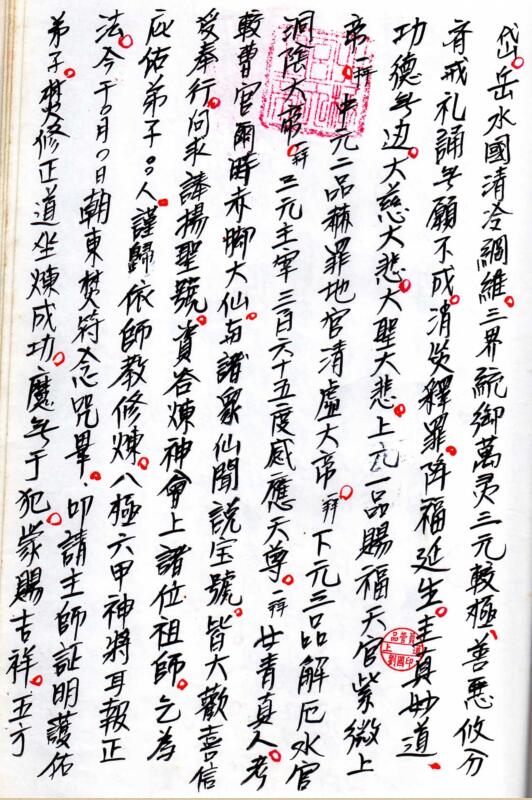 岱岳水國清冷綱維三界統御萬灵三元較極善悪攸分
斉戒礼誦無願不成消災釋罪降福延生圭真妙道
功德無边大慈大悲大聖大悲上元一品賜福天官紫微上
帝一拜中元二品赦罪地官清虛大帝一拜下元三品解厄水官
洞陰大帝一拜三元主宰三百六十五度感應天尊一拜女青真人考
較曹官爾時赤脚大仙与諸衆仙聞說宝號皆大歡喜信
受奉行向来諱揚聖號資谷煉神會上諸位祖師乞為
庇佑弟子○○人謹歸依師教修煉八極六甲神將耳報正
法今于○月○日朝東焚符念咒畢叩請主師証明護佑
弟子焚修正道坐煉成功魔無于犯蒙賜吉祥五方